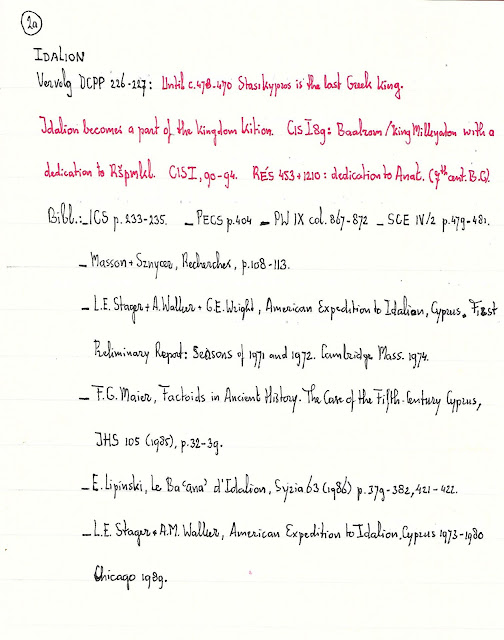 2a
IDALION
Vervolg DCPP 226-227: Until c. 478-470 Stasikypros is the last Greek king.
Idalion becomes a part of the kingdom Kition. CIS I 89: Baalrom/King Milkyaton with a
dedication to Ršpmkl. CIS I, 90-94. RÉS 453+1210: dedication to Anat.
Bibl.: _ ICS p. 233-235. _ PECS p. 404 _ PW IX col. 867-872 _ SCE IV/2 p. 479-481.
_ Masson + Sznycer, Recherches, p. 108-113.
_ L.E. Stager + A. Walker + G.E. Wright, American Expedition to Idalion, Cyprus. First
Preliminary Report: Seasons of 1971 and 1972. Cambridge Mass. 1974.
_ F.G. Maier, Factoids in Ancient History. The Case of the Fifth-Century Cyprus,
JHS 105 (1985), p. 32-39.
_ E. Lipinski, Le Baʿanaʾ d'Idalion, Syria 63 (1986) p. 379-382, 421-422.
_ L.E. Stager + A.M. Walker, American Expedition to Idalion, Cyprus 1973-1980
Chicago 1989.